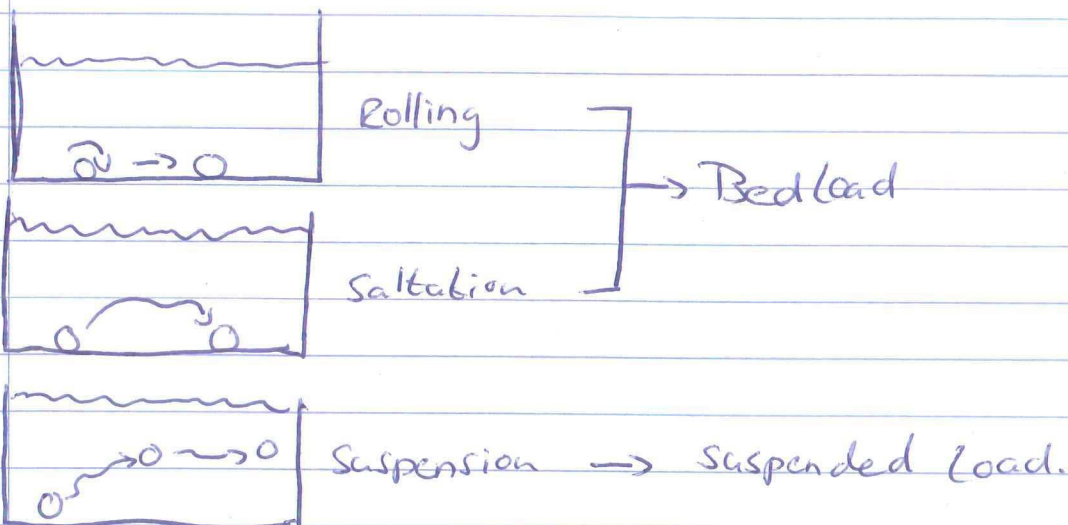 Rolling
Bedload
Saltation
Suspension → suspended load.